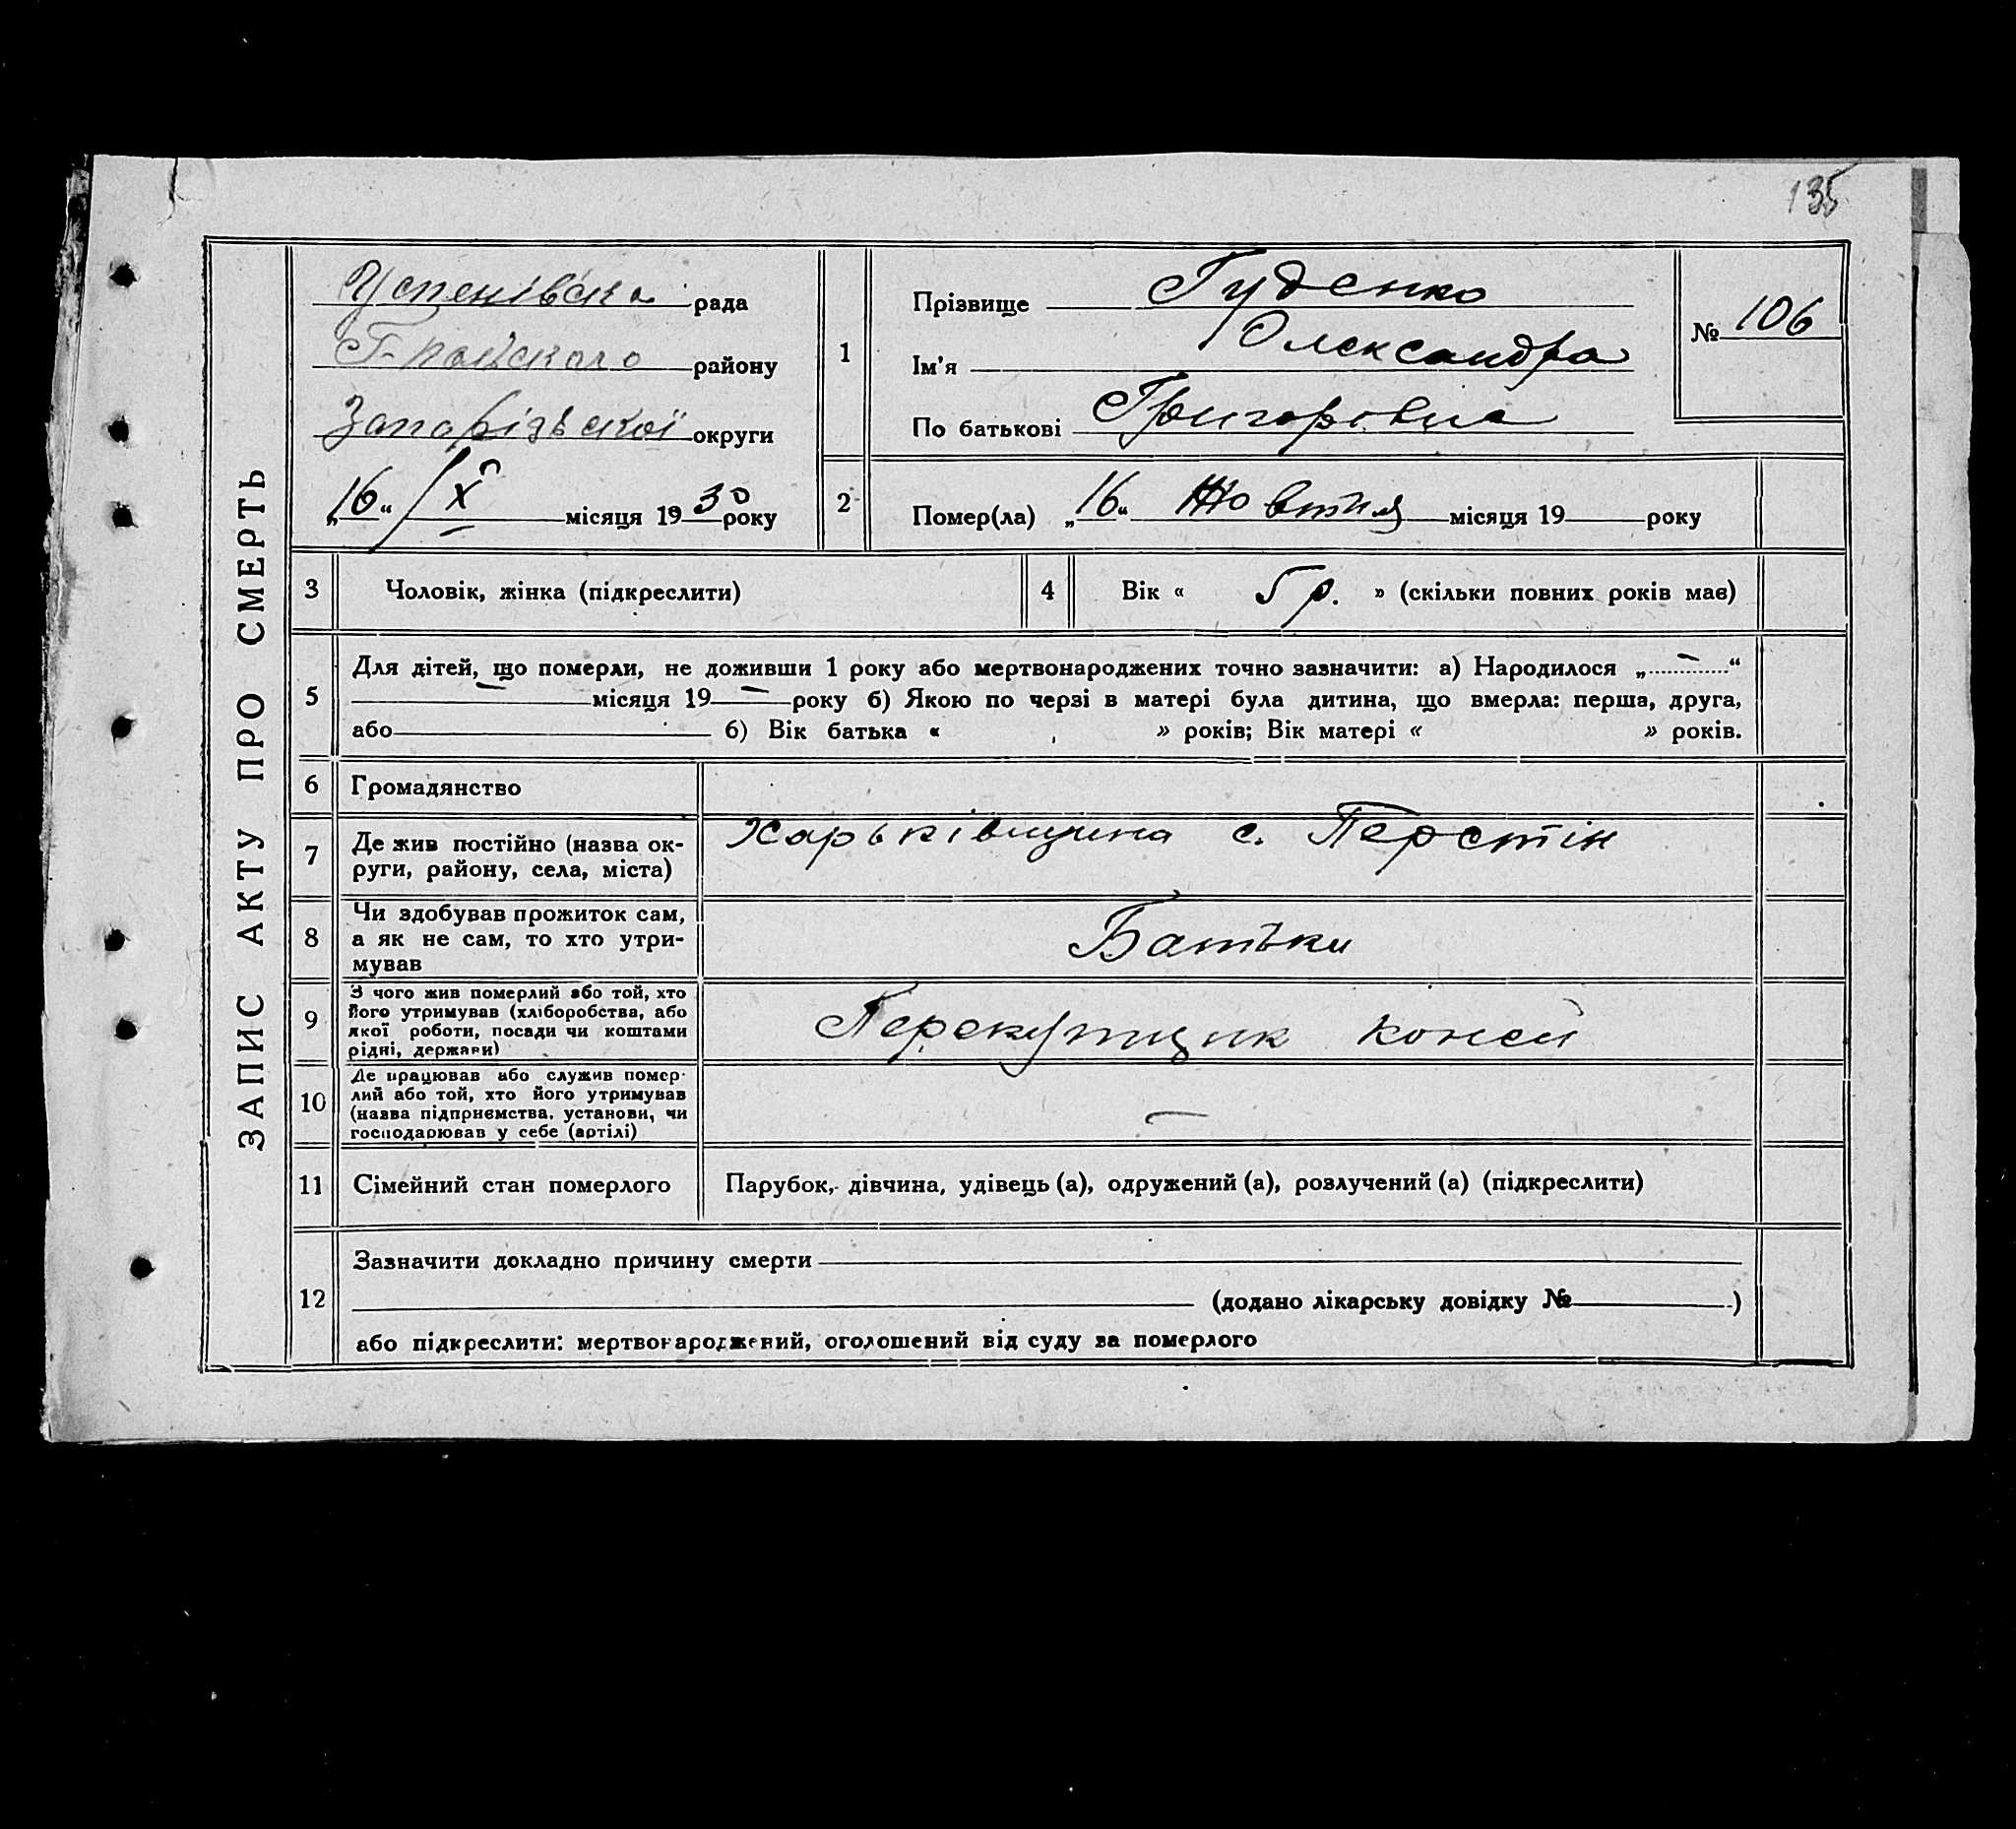 135
ЗАПИС АКТУ ПРО СМЕРТЬ
Успенівська рада
району
Запорізької округи
„16“ X місяця 1930 року
1
Прізвище Гуденко
Ім'я Олександра
По батькові Григоровна
№ 106
2
Помер(ла) „16“ Жовтня місяця 19 року
3 Чоловік, жінка (підкреслити)
4 Вік « 5 р. » (скільки повних років має)
5
Для дітей, що померли, не доживши 1 року або мертвонароджених точно зазначити: а) Народилося „ — “
— місяця 19 — року б) Якою по черзі в матері була дитина, що вмерла: перша, друга,
або б) Вік батька « » років; Вік матері « » років.
6 Громадянство
7
Де жив постійно (назва ок-
руги, району, села, міста)
Харьківщина с. Перстін
8
Чи здобував прожиток сам,
а як не сам, то хто утри-
мував
Батьки
9
З чого жив померлий або той, хто
його утримував (хліборобства, або
якої роботи, посади чи коштами
рідні, держави)
Перекупщик коней
10
Де працював або служив помер-
лий або той, хто його утримував
(назва підприємства, установи, чи
господарював у себе (артілі)
—
11 Сімейний стан померлого
Парубок, дівчина, удівець (а), одружений (а), розлучений (а) (підкреслити)
12
Зазначити докладно причину смерти
(додано лікарську довідку № )
або підкреслити: мертвонароджений, оголошений від суду за померлого